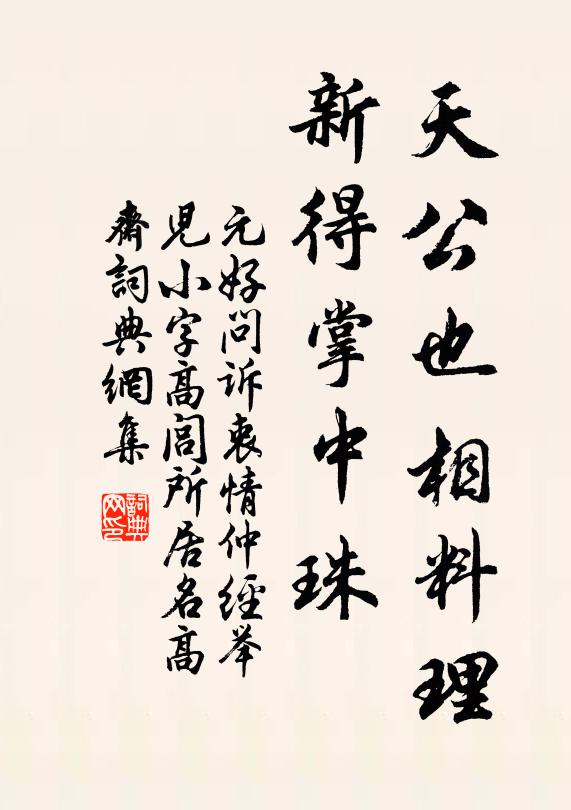 天公也相料理
新得掌中珠
元好问诉衷情仲經举
児小字高閭所居名高
齋詞典網集
詞典网印